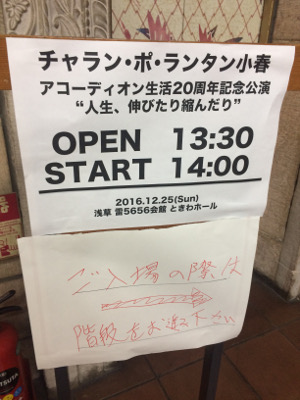 チャラン・ポ・ランタン小春
アコーディオン生活20周年記念公演
“人生、伸びたり縮んだり”
OPEN 13:30
START 14:00
2016.12.25(Sun)
浅草 雷5656会館 ときわホール
ご入場の際は
階段をお進み下さい